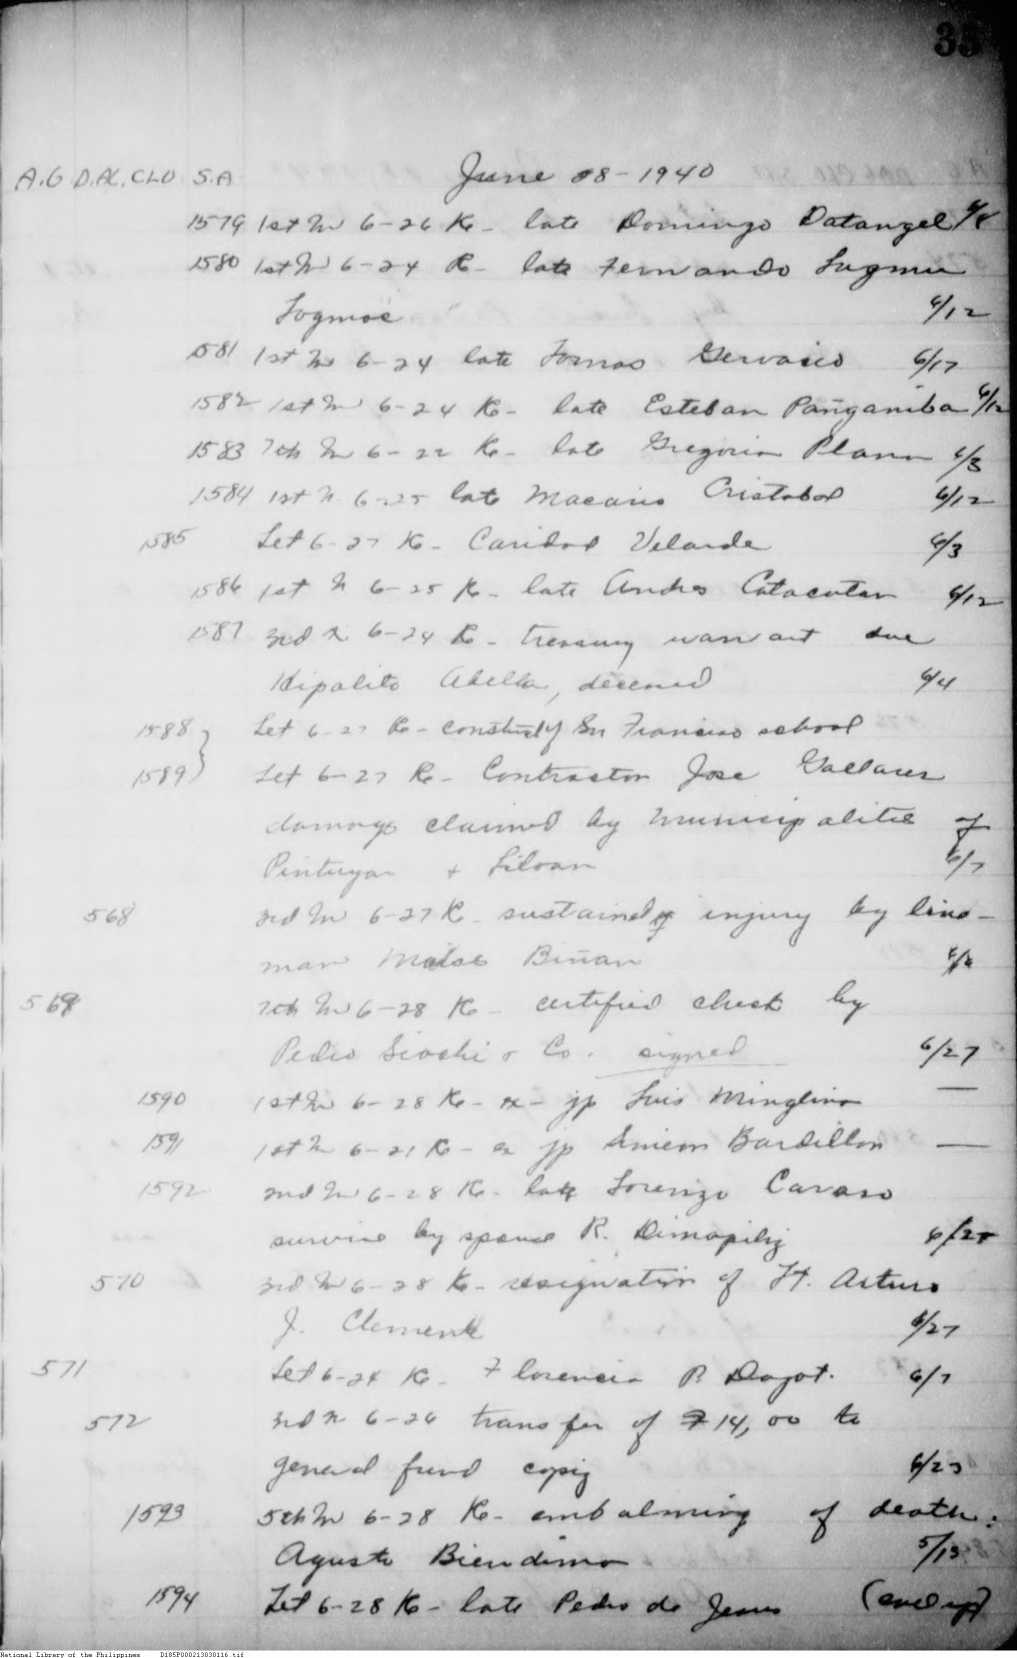 A.G D.AC. CLO S.A June 08-1940
1579 1st In 6-26 Re- late Domingo Datangel 6/8
1580 1st In 6-24 Re- late Fernando Lugmu
Logmoc 6/12
1581 1st In 6-24 late Tomas Gervacio 6/17
1582 1st In 6-24 Re- late Esteban Pañganiba 6/12
1583 7th In 6-22 Re- late Gregorio Plana 6/3
1584 1st In 6-25 late Macario Cristobal 6/12
1585 Let 6-27 Re- Caridad Velarde 6/3
1586 1st In 6-25 Re- late Andres Catacutan 6/12
1587 3rd In 6-24 Re- treasury warrant due
Hipolito Abella, deceased 6/4
1588 Let 6-27 Re- Francisco school
1589 Let 6-27 Re- Contractor Jose
damage claimed by municipalitie of
Pintuyan + Liloan 6/7
568 3rd In 6-27 Re- sustained injury by line-
man Biñan
569 7th In 6-28 Re- certified check by
Pedro Siochi & Co. signed 6/27
1590 1st In 6-28 Re- ex- jp Luis
1591 1st In 6-21 Re- ex jp Simeon Bardillon
1592 2nd In 6-28 Re- late Lorenzo
survive by spouse R. Dimapiliz
570 3rd In 6-28 Re- resignation of Lt. Arturo
J. Clemente 6/27
571 Let 6-24 Re- Florencia P. Dagot. 6/7
572 3rd In 6-26 transfer of ₱14,00 to
general fund
1593 5th In 6-28 Re- embalming of death:
Agusto Biendima 5/13
1594 Let 6-28 Re- late Pedro de Jesus
National Library of the Philippines D185P000213030116.tif